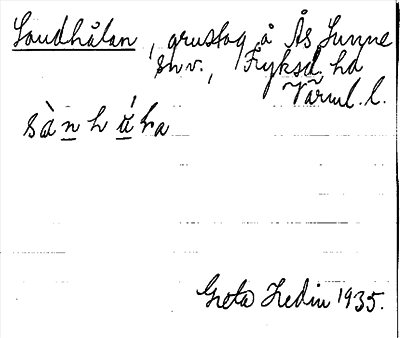 Sandhålan, grustag å Ås Sunne
snv., Fryksd. hd
Värml. l.
sànhǻɫa
Greta Hedin 1935.